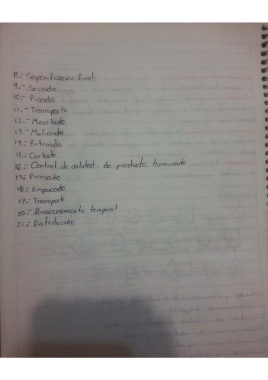 8.- Separificacion final
9.- Secado
10.- Picado
11.- Transporte
12.- Mezclado
13.- Moliendo
14.- Extruido
15.- Cortado
16.- Control de calidad de producto terminado
17.- Prensado
18.- Empacado
19.- Transporte
20.- Almacenamiento temporal
21.- Distribucion